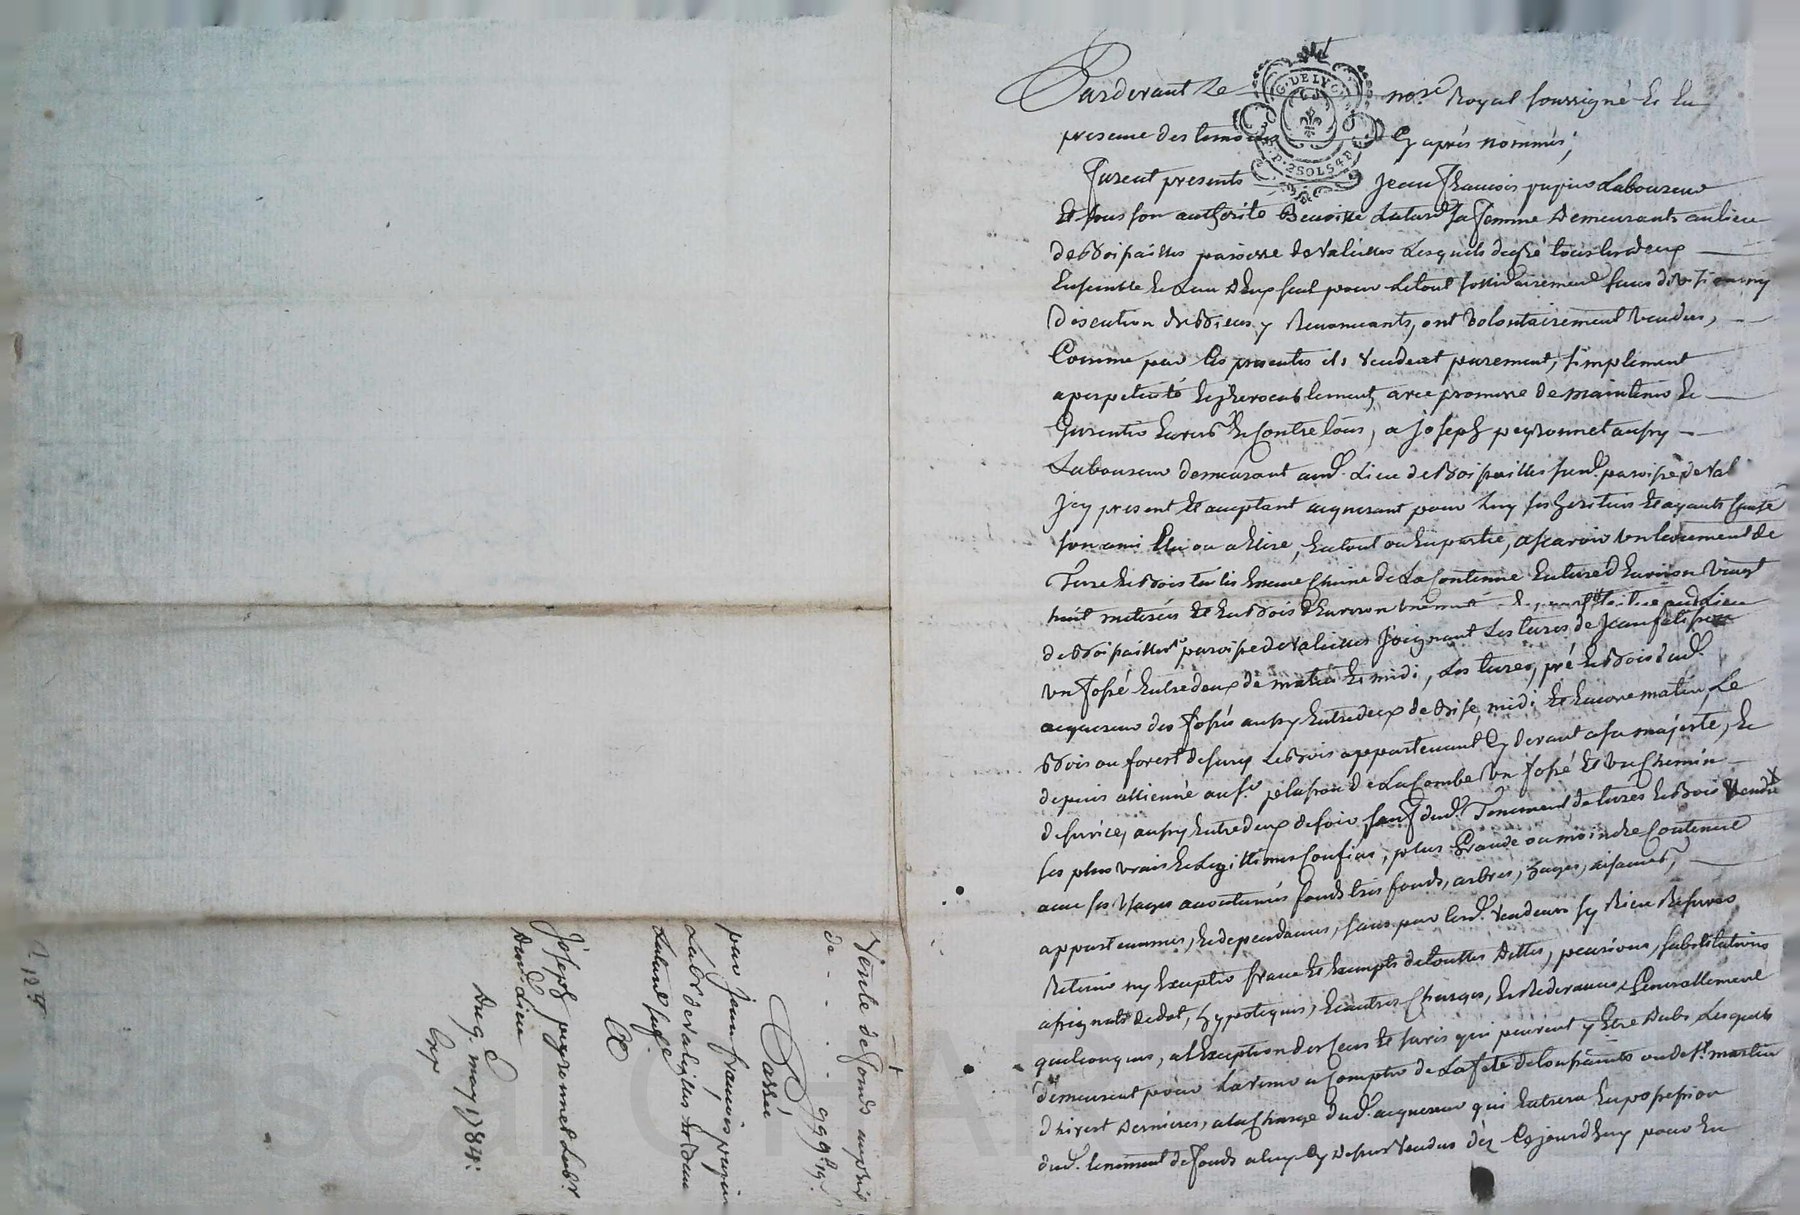 Pardevant Le nore Royal soussigné et en
presence des temoins Cy aprés nommés;
furent presents Jean françois pupier Laboureur
Et sous son authorité Benoitte sa femme Demeurants au lieu
de Boispailles paroisse de Valeilles Lesquels de gré tous les deux
Ensemble et L'un d'Eux seul pour Le tout sollidairement sans division ny
Discution de Biens y Renoncants, ont Volontairement Vendus,
Comme par les presentes ils Vendent purement, simplement
a perpetuité et jrrevocablement avec promesse de maintenir et
Garentir Envers et Contre tous, a joseph peyronnet aussy
Laboureur demeurant aud. Lieu de Boispailles susd. paroisse de Val
jcy present et acceptant acquerant pour luy ses heritiers et ayants Cause
son ami Elu ou a Elire, En tout ou En partie, ascavoir un tenement de
Terre et Bois taillis Essence Chaine de La Contenue En terre d'Environ Vingt
huit meterées et En Bois d'Environ
de Boispailles paroisse de Valeilles joignant Les terres de jean
un fossé Entredeux de matin et midi, Les terres, pré et Bois dud.
acquereur des fossés aussy Entredeux de Bise, midi et Encore matin, Le
Bois ou forest de Le Bois appartenant Cy devant a sa majesté, et
depuis allienné au sr. de La Combe un fossé et un Chemin
de service aussy Entredeux de soir sauf dud. Tenement de terres et Bois Vendu
ses plus vrais et Legittimes Confins, plus Grande ou moindre Contenue
avec ses Usages accoutumés fonds tres fonds, arbres, hayes, aisances,
appartenances, et dependances, sans par lesd. Vendeurs sy Rien Reserver
Retenir ny Excepter franc et Exempts de touttes Dettes, pensions, substitutions
assignats de dot, hypoteques, et autres Charges, et Redevances Generallement
quelconques, a l'Exception des Cens et servis qui peuvent y Etre dubs Lesquels
demeurent pour L'avenir a Compter de La féte de toussaints ou de st. martin
d'hivert Dernieres, a la Charge dud. acquereur qui Entrera En possession
dud. tenement de fonds a luy Cy dessus Vendus dés Cejourdhuy pour En
G. DE LYON
2 SOLS 4 D
Vente de fonds au prix
de - - - - 999# 19s.
Passée
par Jean françois pupier
Labr. de Valeilles et
sa fe.
A
Joseph peyronnet Labr.
Dud. Lieu
Du 9. may 1784.
Exp